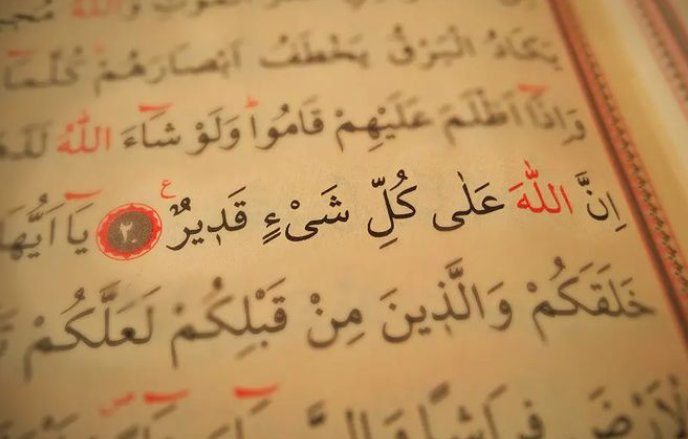 يَكَادُ الْبَرْقُ يَخْطَفُ اَبْصَارَهُمْ كُلَّمَا
وَاِذَا اَظْلَمَ عَلَيْهِمْ قَامُوا وَلَوْ شَاءَ اللّٰهُ
اِنَّ اللّٰهَ عَلٰى كُلِّ شَىْءٍ قَدٖيرٌ ع ٢٠ يَا اَيُّهَا
خَلَقَكُمْ وَالَّذٖينَ مِنْ قَبْلِكُمْ لَعَلَّكُمْ
الْاَرْضَ فِرَاشًا وَالسَّ